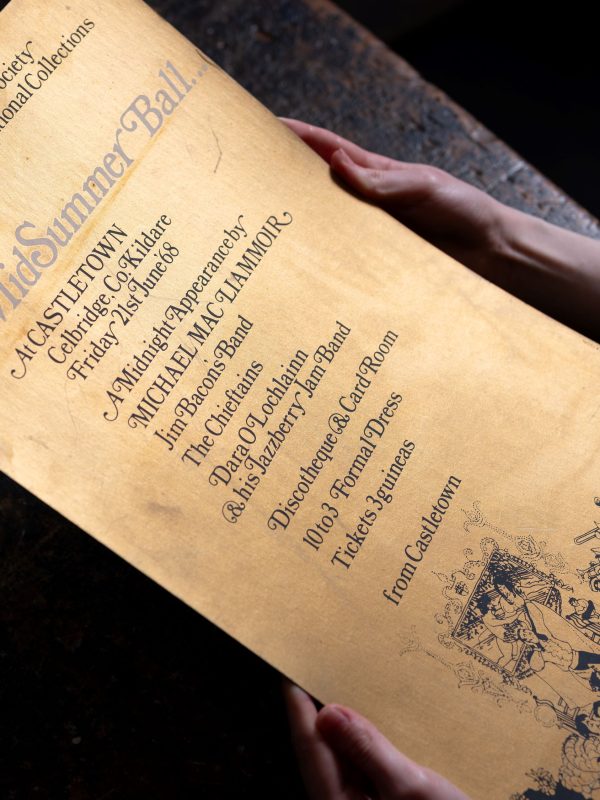 ociety
tional Collections
MidSummer Ball...
At CASTLETOWN
Celbridge, Co. Kildare
Friday 21st June '68
A Midnight Appearance by
MICHAEL MAC LIAMMOIR
Jim Bacon's Band
The Chieftains
Dara O Lochlainn
& his Jazzberry Jam Band
Discotheque & Card Room
10 to 3 Formal Dress
Tickets 3 guineas
from Castletown